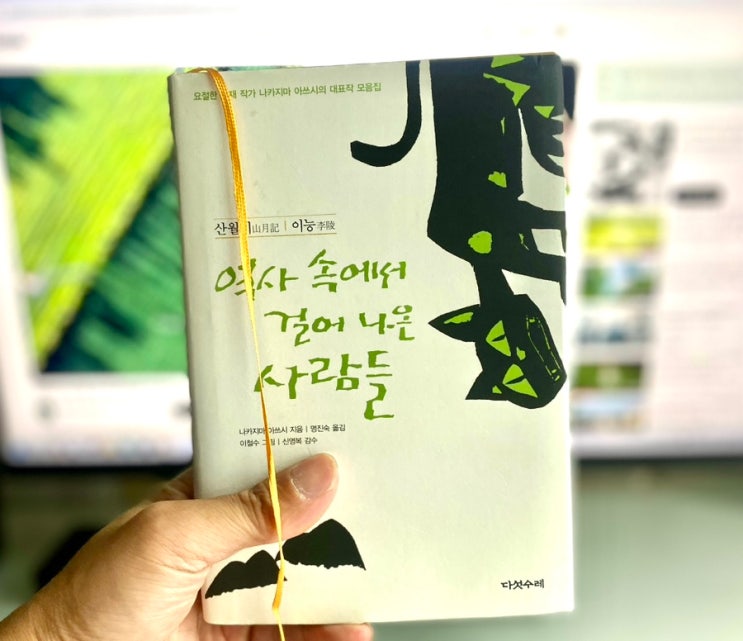 요절한 천재 작가 나카지마 아쓰시의 대표작 모음집
산월기山月記 | 이능李陵
역사 속에서
걸어 나온
사람들
나카지마 아쓰시 지음 | 명진숙 옮김
이철수 그림 | 신영복 감수
다섯수레